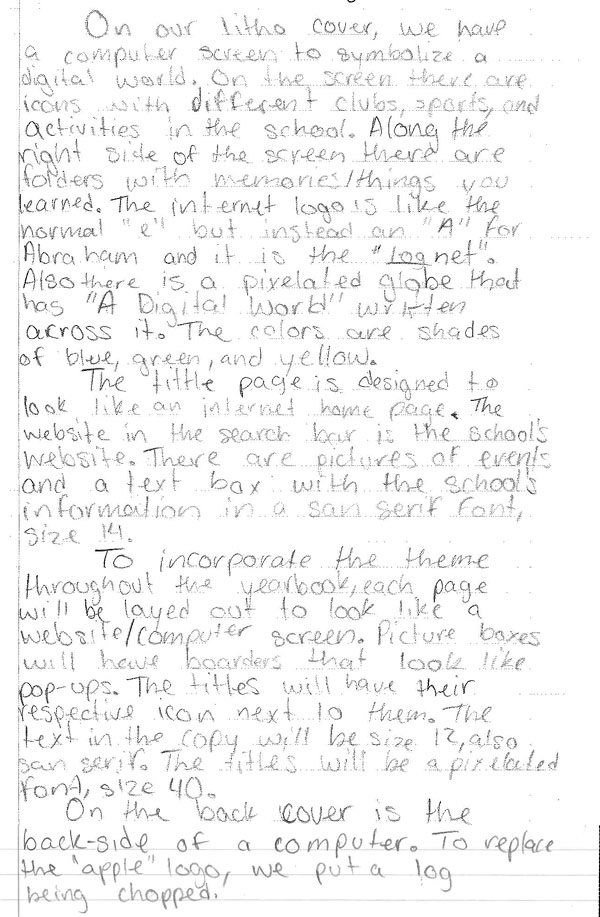 On our litho cover, we have
a computer screen to symbolize a
digital world. On the screen there are
icons with different clubs, sports, and
activities in the school. Along the
right side of the screen there are
folders with memories/things you
learned. The internet logo is like the
normal "e" but instead an "A" for
Abraham and it is the "Lognet".
Also there is a pixelated globe that
has "A Digital World" written
across it. The colors are shades
of blue, green, and yellow.
The tittle page is designed to
look like an internet home page. The
website in the search bar is the school's
website. There are pictures of events
and a text box with the school's
information in a san serif font,
size 14.
To incorporate the theme
throughout the yearbook, each page
will be layed out to look like a
website/computer screen. Picture boxes
will have boarders that look like
pop-ups. The titles will have their
respective icon next to them. The
text in the copy will be size 12, also
san serif. The titles will be a pixelated
font, size 40.
On the back cover is the
back-side of a computer. To replace
the "apple" logo, we put a log
being chopped.